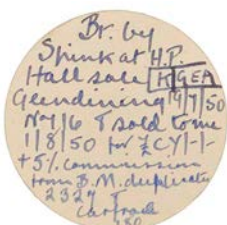 Br. by
Spink at H.P.
Hall sale K GEA
Glendining 19/7/50
No 716 & sold to me
1/8/50 for £CY/-/-
+5% commission
from B.M. duplicate
2327
Carfrae
180